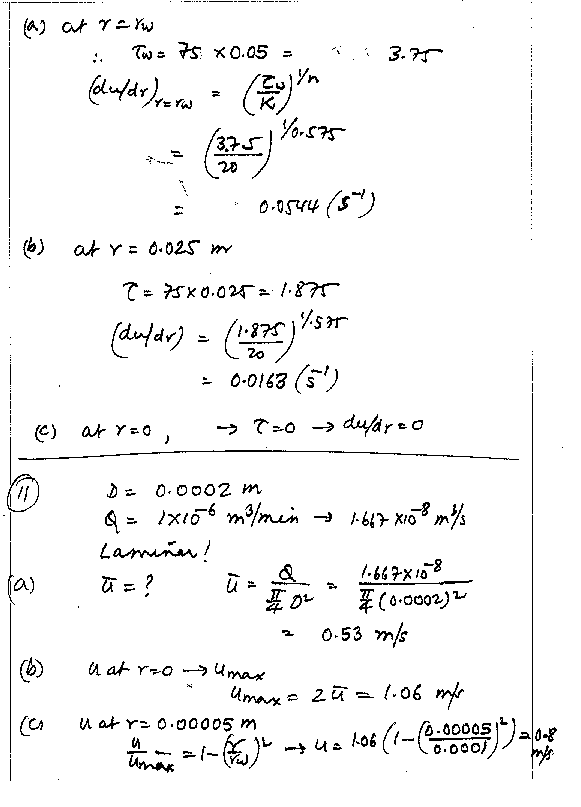 (a) at r = rw
∴ τw = 75 × 0.05 = 3.75
(du/dr)r=rw = (τw/K)^1/n
= (3.75/20)^1/0.575
= 0.0544 (s⁻¹)
(b) at r = 0.025 m
τ = 75 × 0.025 = 1.875
(du/dr) = (1.875/20)^1/.575
= 0.0163 (s⁻¹)
(c) at r = 0, → τ = 0 → du/dr = 0
(11) D = 0.0002 m
Q = 1×10⁻⁶ m³/min → 1.667 × 10⁻⁸ m³/s
Laminar!
(a) ū = ? ū = Q/(π/4 D²) = 1.667×10⁻⁸/(π/4 (0.0002)²)
= 0.53 m/s
(b) u at r=0 → umax
umax = 2ū = 1.06 m/s
(c) u at r = 0.00005 m
u/umax = 1-(r/rw)² → u = 1.06 (1-(0.00005/0.0001)²) = 0.8 m/s